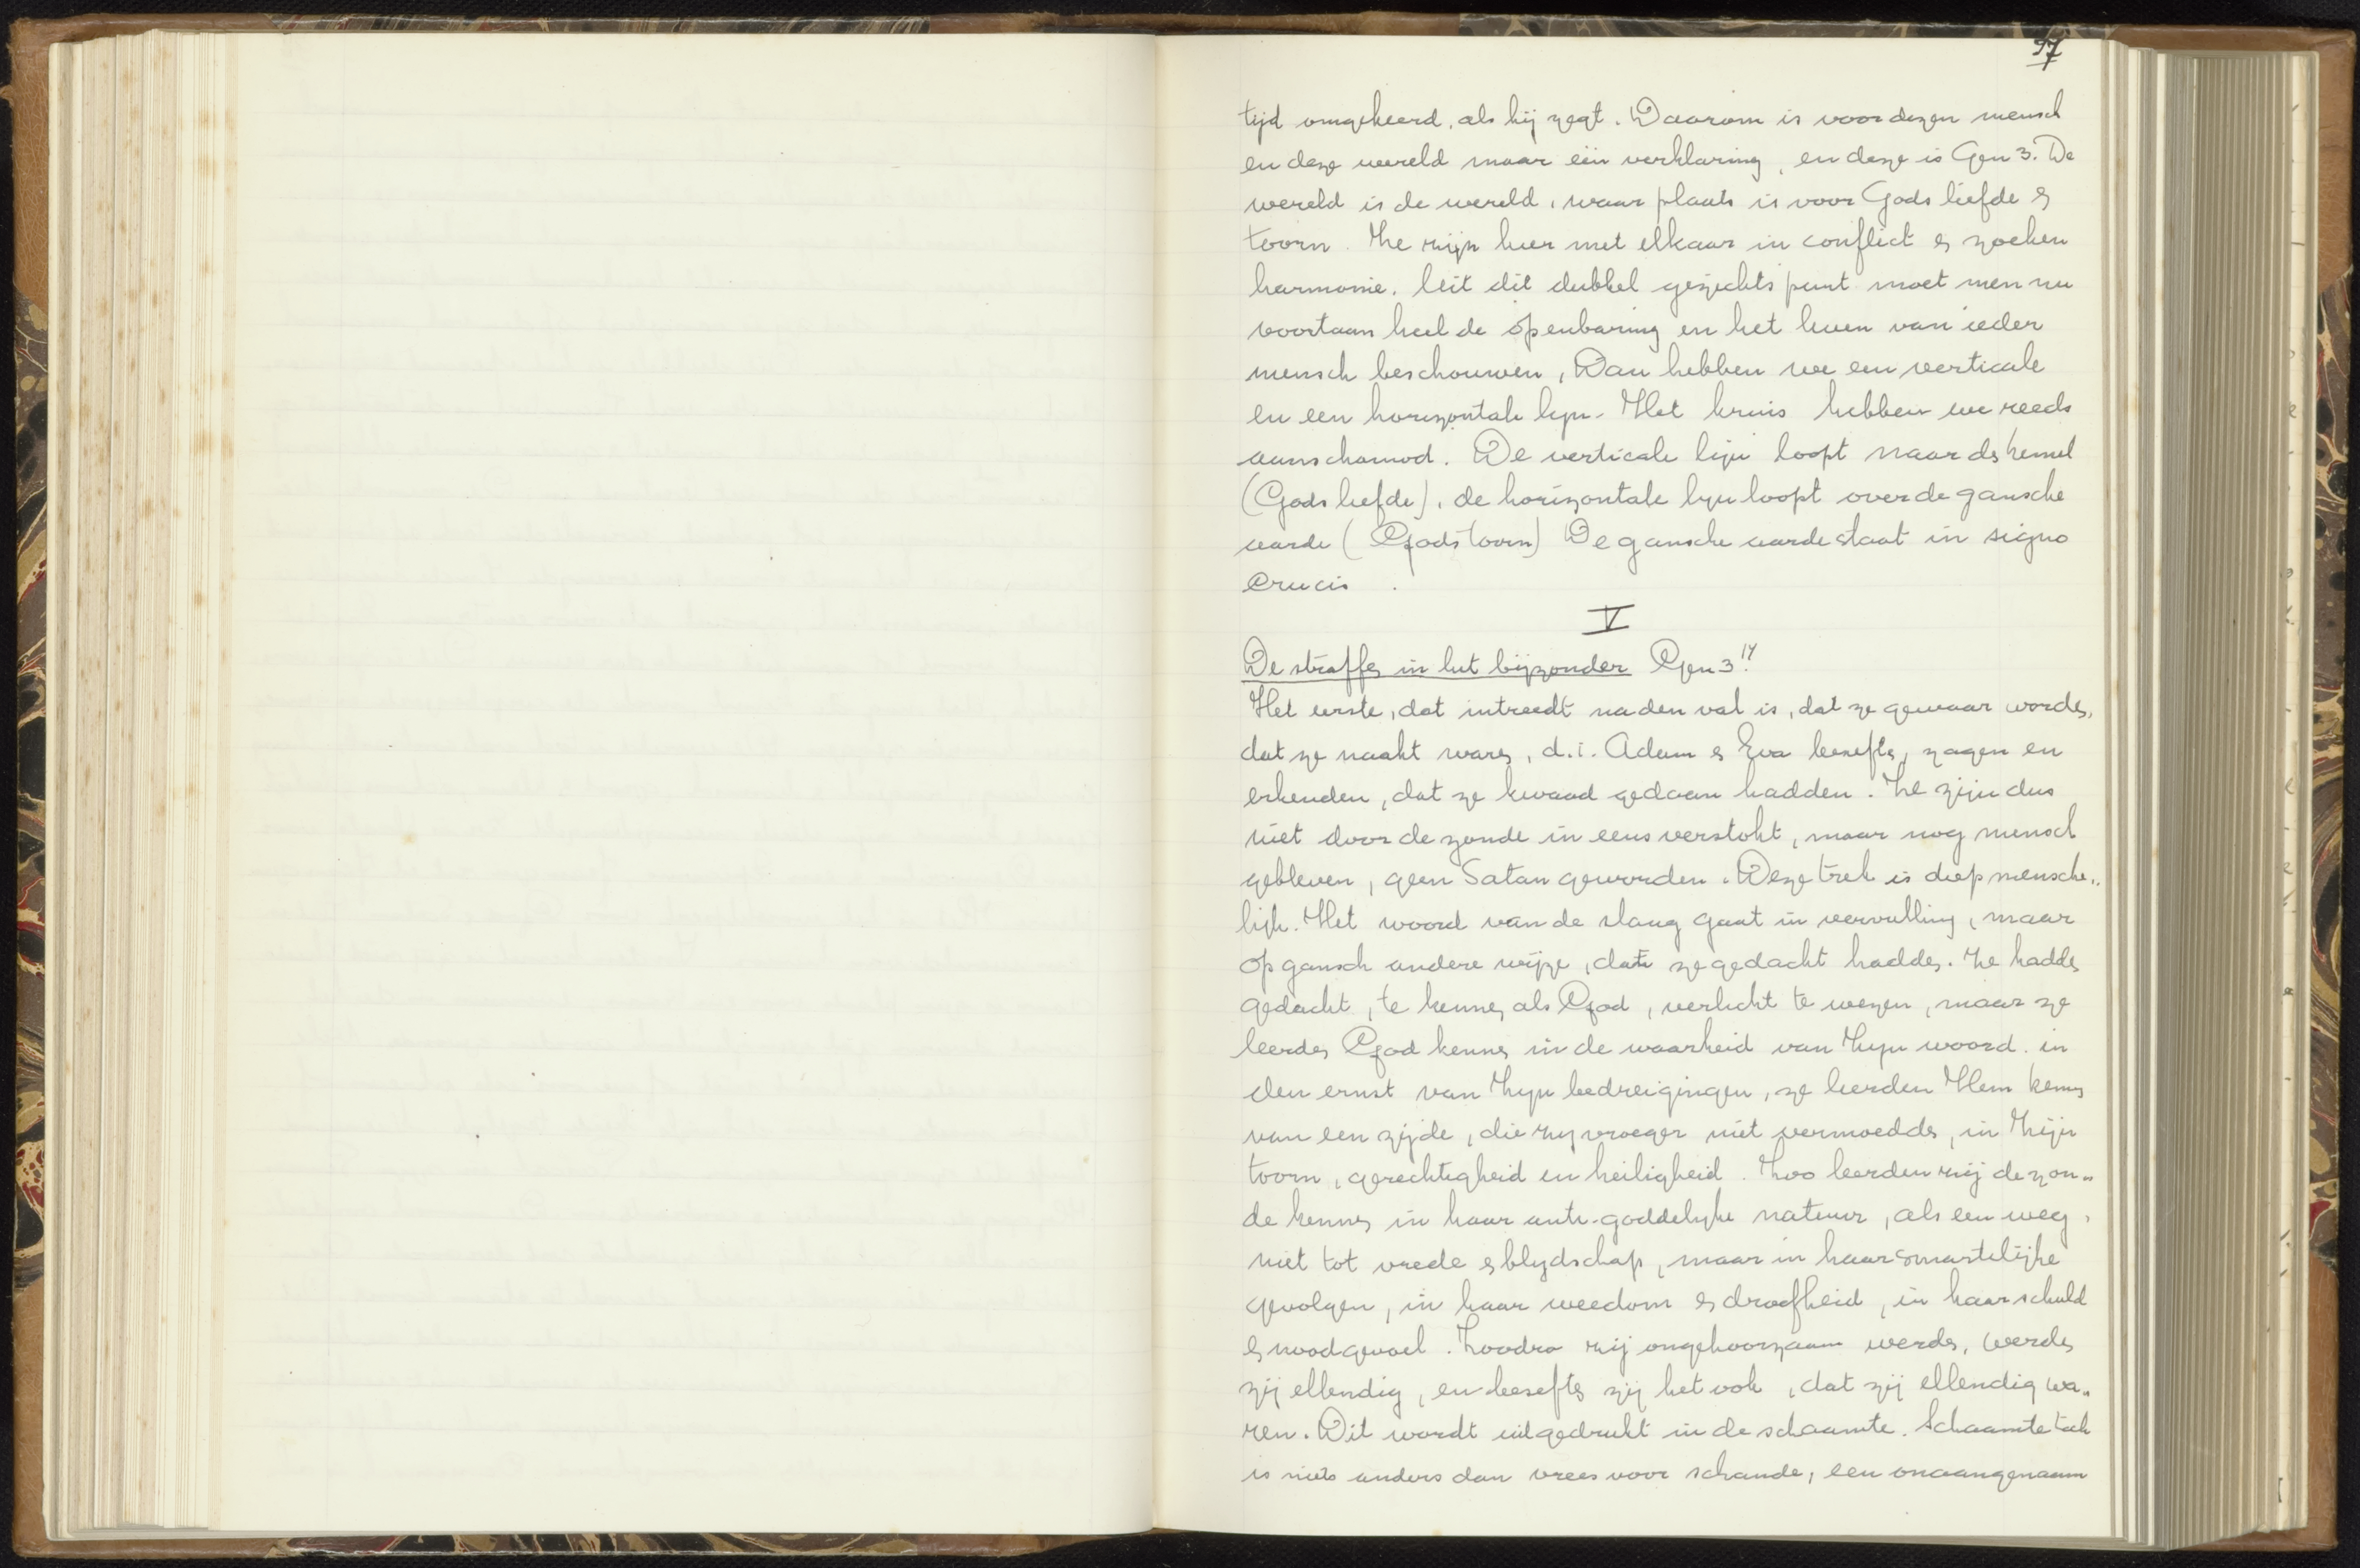 97
tijd omgekeerd, als hij zegt. Daarom is voor dezen mensch
en deze wereld maar één verklaring, en deze is Gen 3. De
wereld is de wereld, waar plaats is voor Gods liefde &
toorn. Ze zijn hier met elkaar in conflict & zoeken
harmonie. Uit dit dubbel gezichtspunt moet men nu
voortaan heel de openbaring en het leven van ieder
mensch beschouwen, Dan hebben we een verticale
en een horizontale lijn. Het kruis hebben we reeds
aanschouwd. De verticale lijn loopt naar de hemel
(Gods liefde), de horizontale lijn loopt over de gansche
aarde (Gods toorn) De gansche aarde staat in signo
crucis.
V
De straffen in het bijzonder Gen 3
Het eerste, dat intreedt na den val is, dat ze gewaar worden,
dat ze naakt waren, d.i. Adam & Eva beseften, zagen en
erkenden, dat ze kwaad gedaan hadden. Ze zijn dus
niet door de zonde in eens verstokt, maar nog mensch
gebleven, geen Satan geworden. Deze trek is diep mensche„
lijk. Het woord van de slang gaat in vervulling, maar
op gansch andere wijze, dan ze gedacht hadden. Ze hadden
gedacht, te kennen als God, verlicht te wezen, maar ze
leerden God kennen in de waarheid van Zijn woord. in
den ernst van Zijn bedreigingen, ze leerden Hem kennen
van een zijde, die zij vroeger niet vermoedden, in Zijn
toorn, gerechtigheid en heiligheid. Zoo leerden zij de zon„
de kennen in haar anti-goddelijke natuur, als een weg,
niet tot vrede & blijdschap, maar in haar smartelijke
gevolgen, in haar weedom & droefheid, in haar schuld
& noodgevoel. Zoodra zij ongehoorzaam werden, werden
zij ellendig, en beseften zij het ook, dat zij ellendig wa„
ren. Dit wordt uitgedrukt in de schaamte. Schaamte toch
is niets anders dan vrees voor schande, een onaangenaam